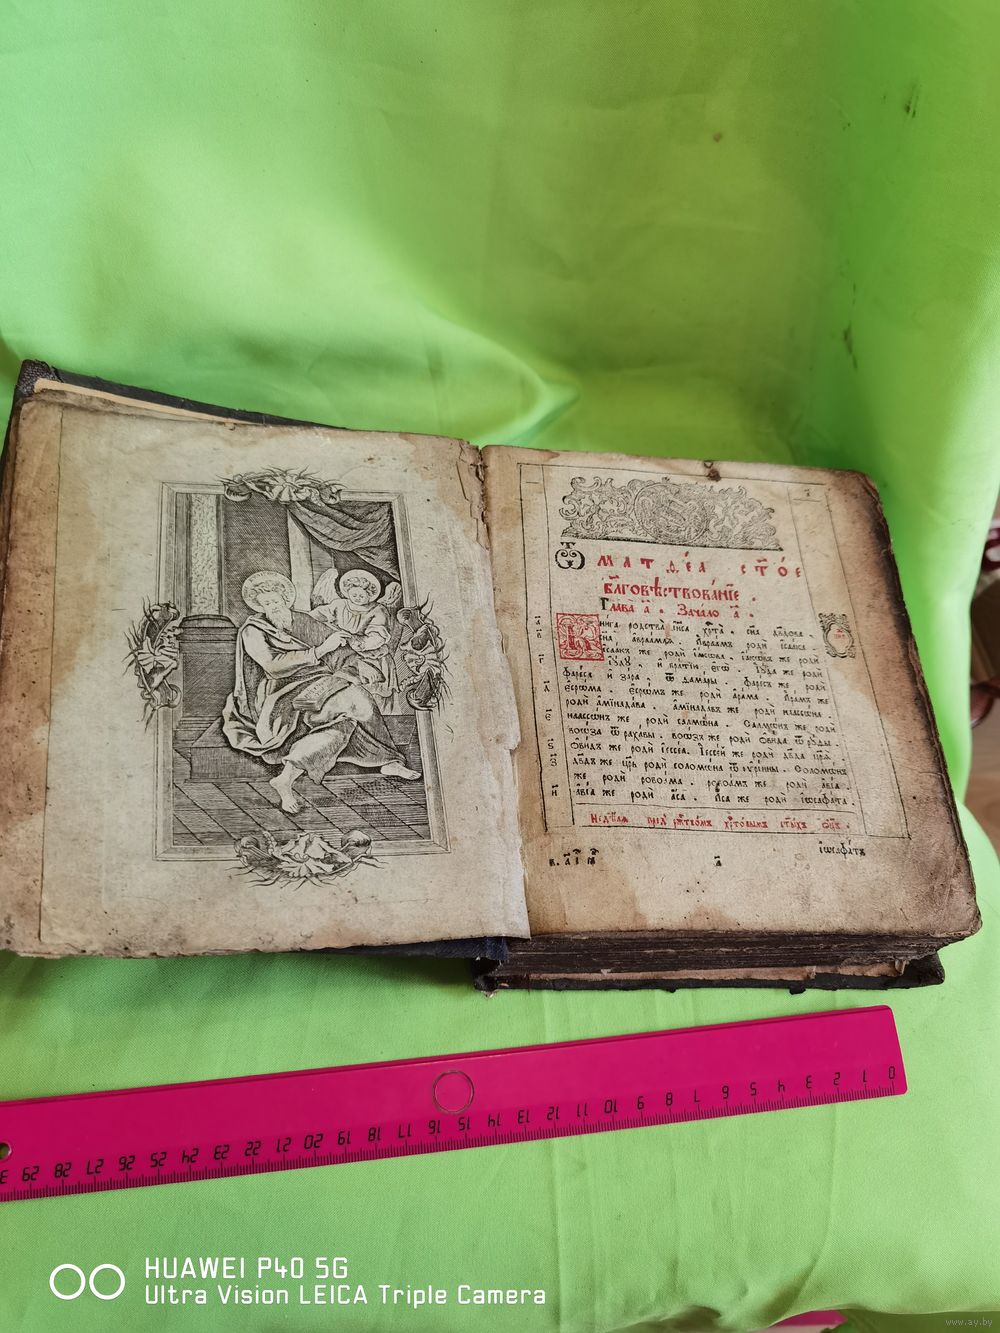 Ѿ МАТѲЕА СТ҃ОЕ
БЛ҃ГОВѢСТВОВАНІЕ
Глава а҃ . Зачало а҃ .
Книга родства іи҃са хрⷭ҇та , сн҃а дв҃дова ,
сн҃а авраамлѧ . Авраамъ роди ісаака .
ісаакъ же роди іакѡва . іакѡвъ же роди
іꙋдꙋ , и братїю егѡ . іꙋда же роди
фареса и зара , ѿ ѳамары . фаресъ же роди
есрѡма . есрѡмъ же роди арама . Арамъ же
роди аминадава . аминадавъ же роди наассѡна .
наассѡнъ же роди салмѡна . Салмѡнъ же роди
воѡза ѿ рахавы . воѡзъ же роди ѡвида ѿ рꙋды .
ѡвидъ же роди іессеа . Іессей же роди дв҃да цр҃ѧ .
дв҃дъ же цр҃ь роди соломѡна ѿ ꙋрїины . Соломѡнъ
же роди ровоама . ровоамъ же роди авїа .
авїа же роди аса . Аса же роди іѡсафата .
Недѣлѧ пред̾ рж҃твомъ хрⷭ҇товымъ ст҃ыхъ ѻ҃цъ .
іѡсафатъ
0 1 2 3 4 5 6 7 8 9 10 11 12 13 14 15 16 17 18 19 20 21 22 23 24 25 26 27 28 29 3
HUAWEI P40 5G
Ultra Vision LEICA Triple Camera
www.ay.by